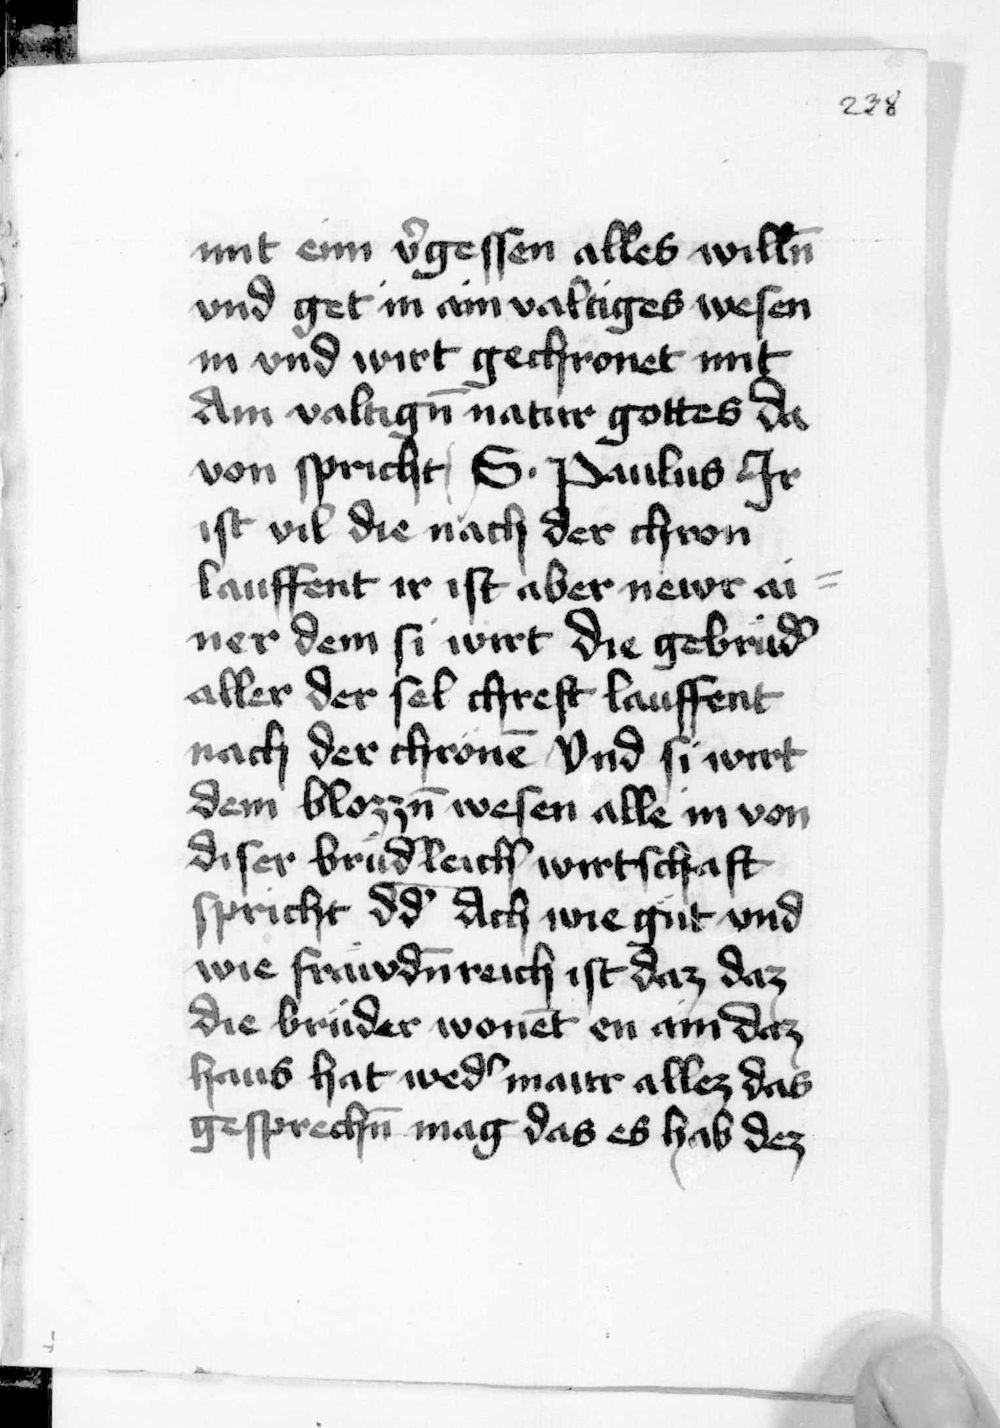 238
mit eim v̄gessen alles willn̄
vnd get in ainualtiges wesen
in vnd wirt gechronet mit
Ain valtign̄ natur gottes da
von spricht S. Paulus Ir
ist vil die nach der chron
lauffent ir ist aber newr ai=
ner dem si wirt die gebrüdˀ
aller der sel chreft lauffent
nach der chrönē Vnd si wirt
dem blozzn̄ wesen alle in von
diser brüdˀleichˀ wirtschaft
spricht ddˀ Ach wie güt vnd
wie fräwdn̄reich ist daz daz
die brüder wonēt en ain daz
haus hat wedˀ maur allez das
gesprechn̄ mag das es hab dez